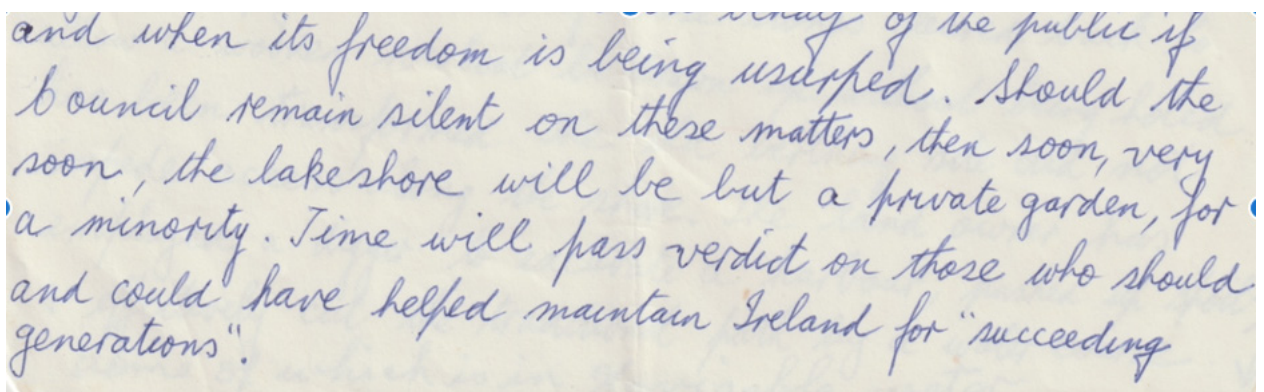 behalf of the public if
and when its freedom is being usurped. Should the
Council remain silent on these matters, then soon, very
soon, the lakeshore will be but a private garden, for
a minority. Time will pass verdict on those who should
and could have helped maintain Ireland for "succeeding
generations".